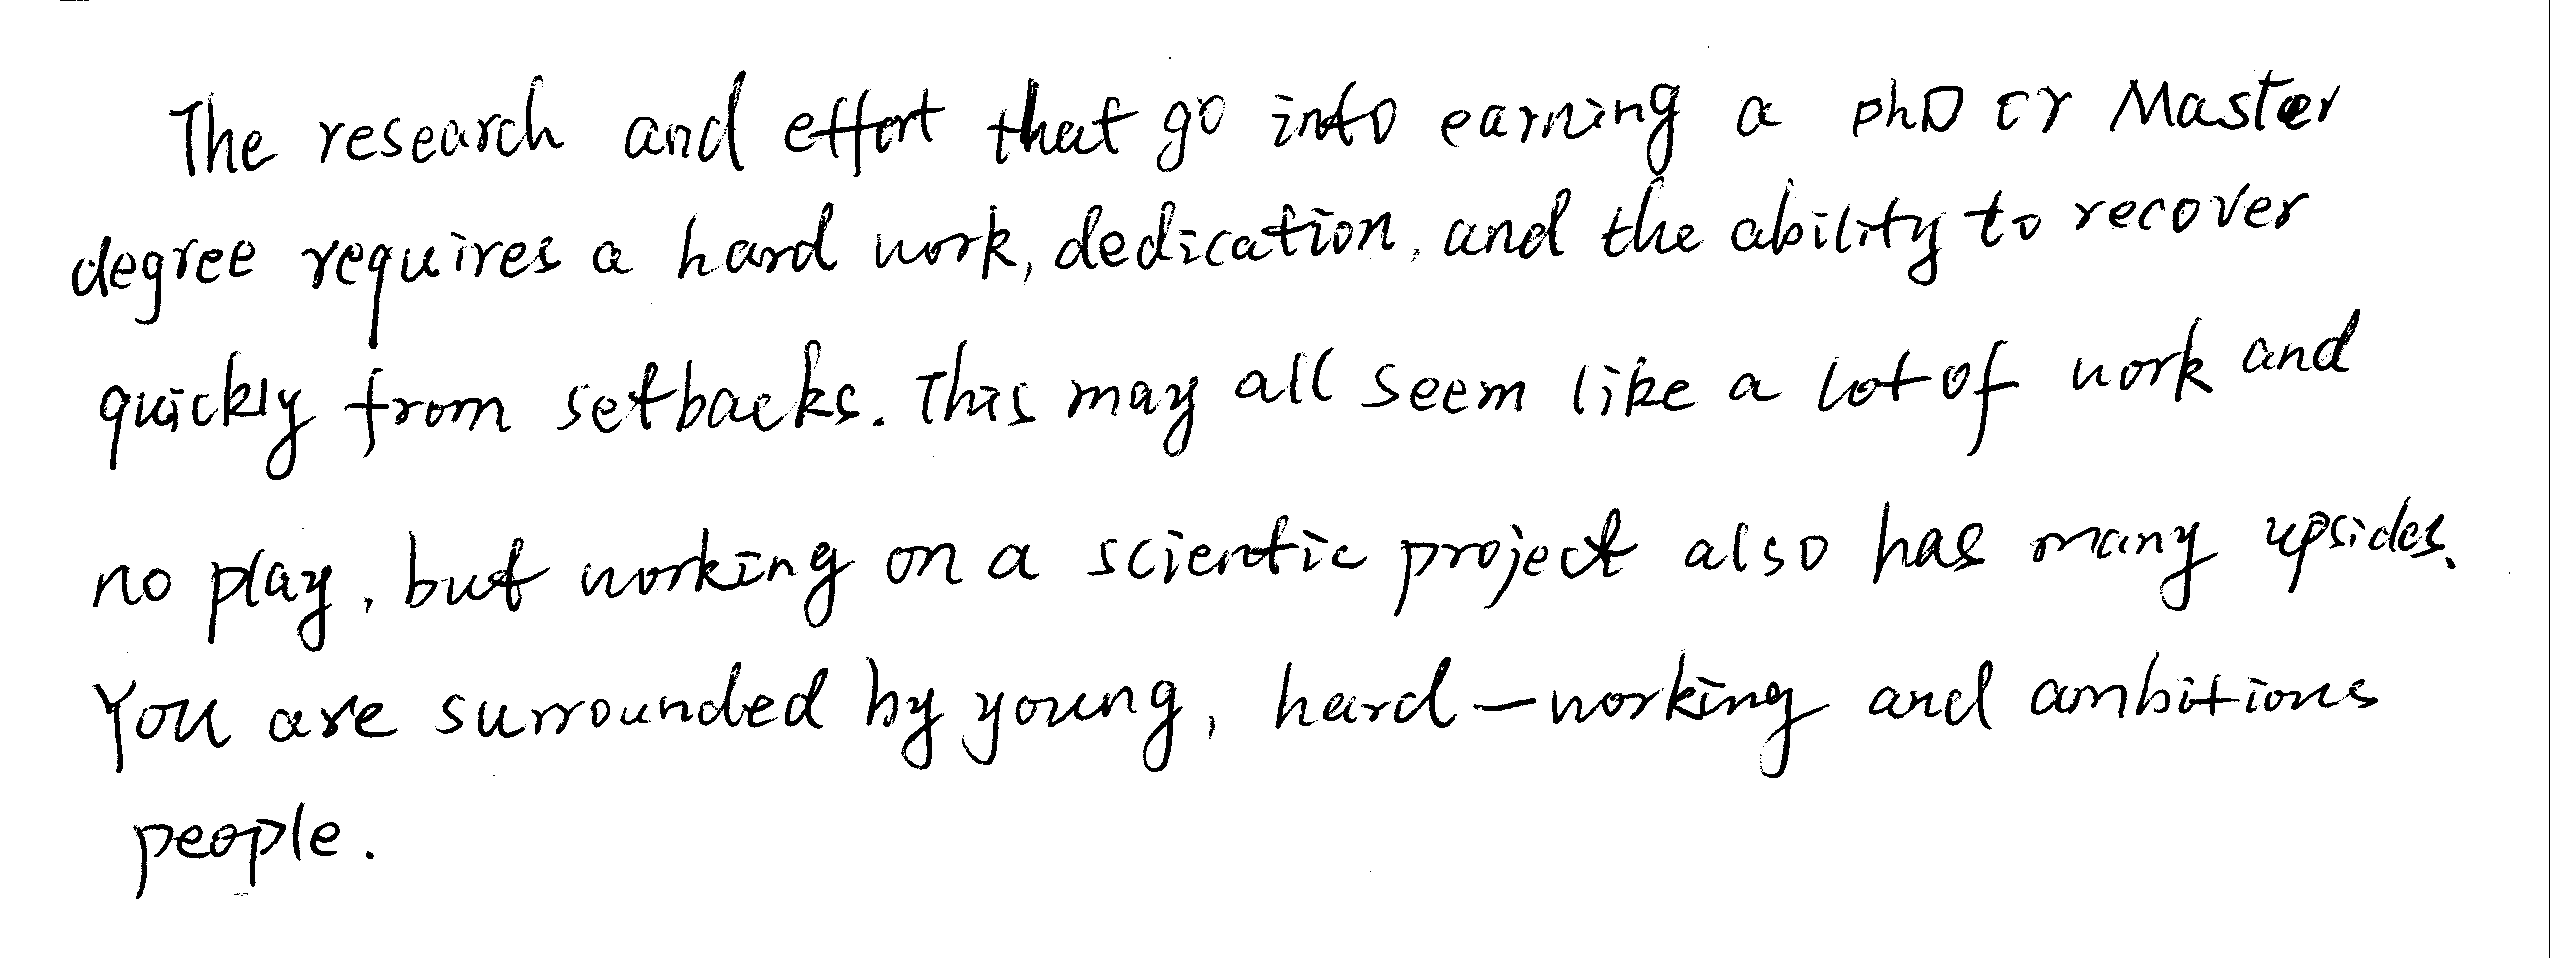 The research and effort that go into earning a phD or Master
degree requires a hard work, dedication, and the ability to recover
quickly from setbacks. This may all seem like a lot of work and
no play, but working on a scientic project also has many upsides.
You are surrounded by young, hard-working and ambitions
people.